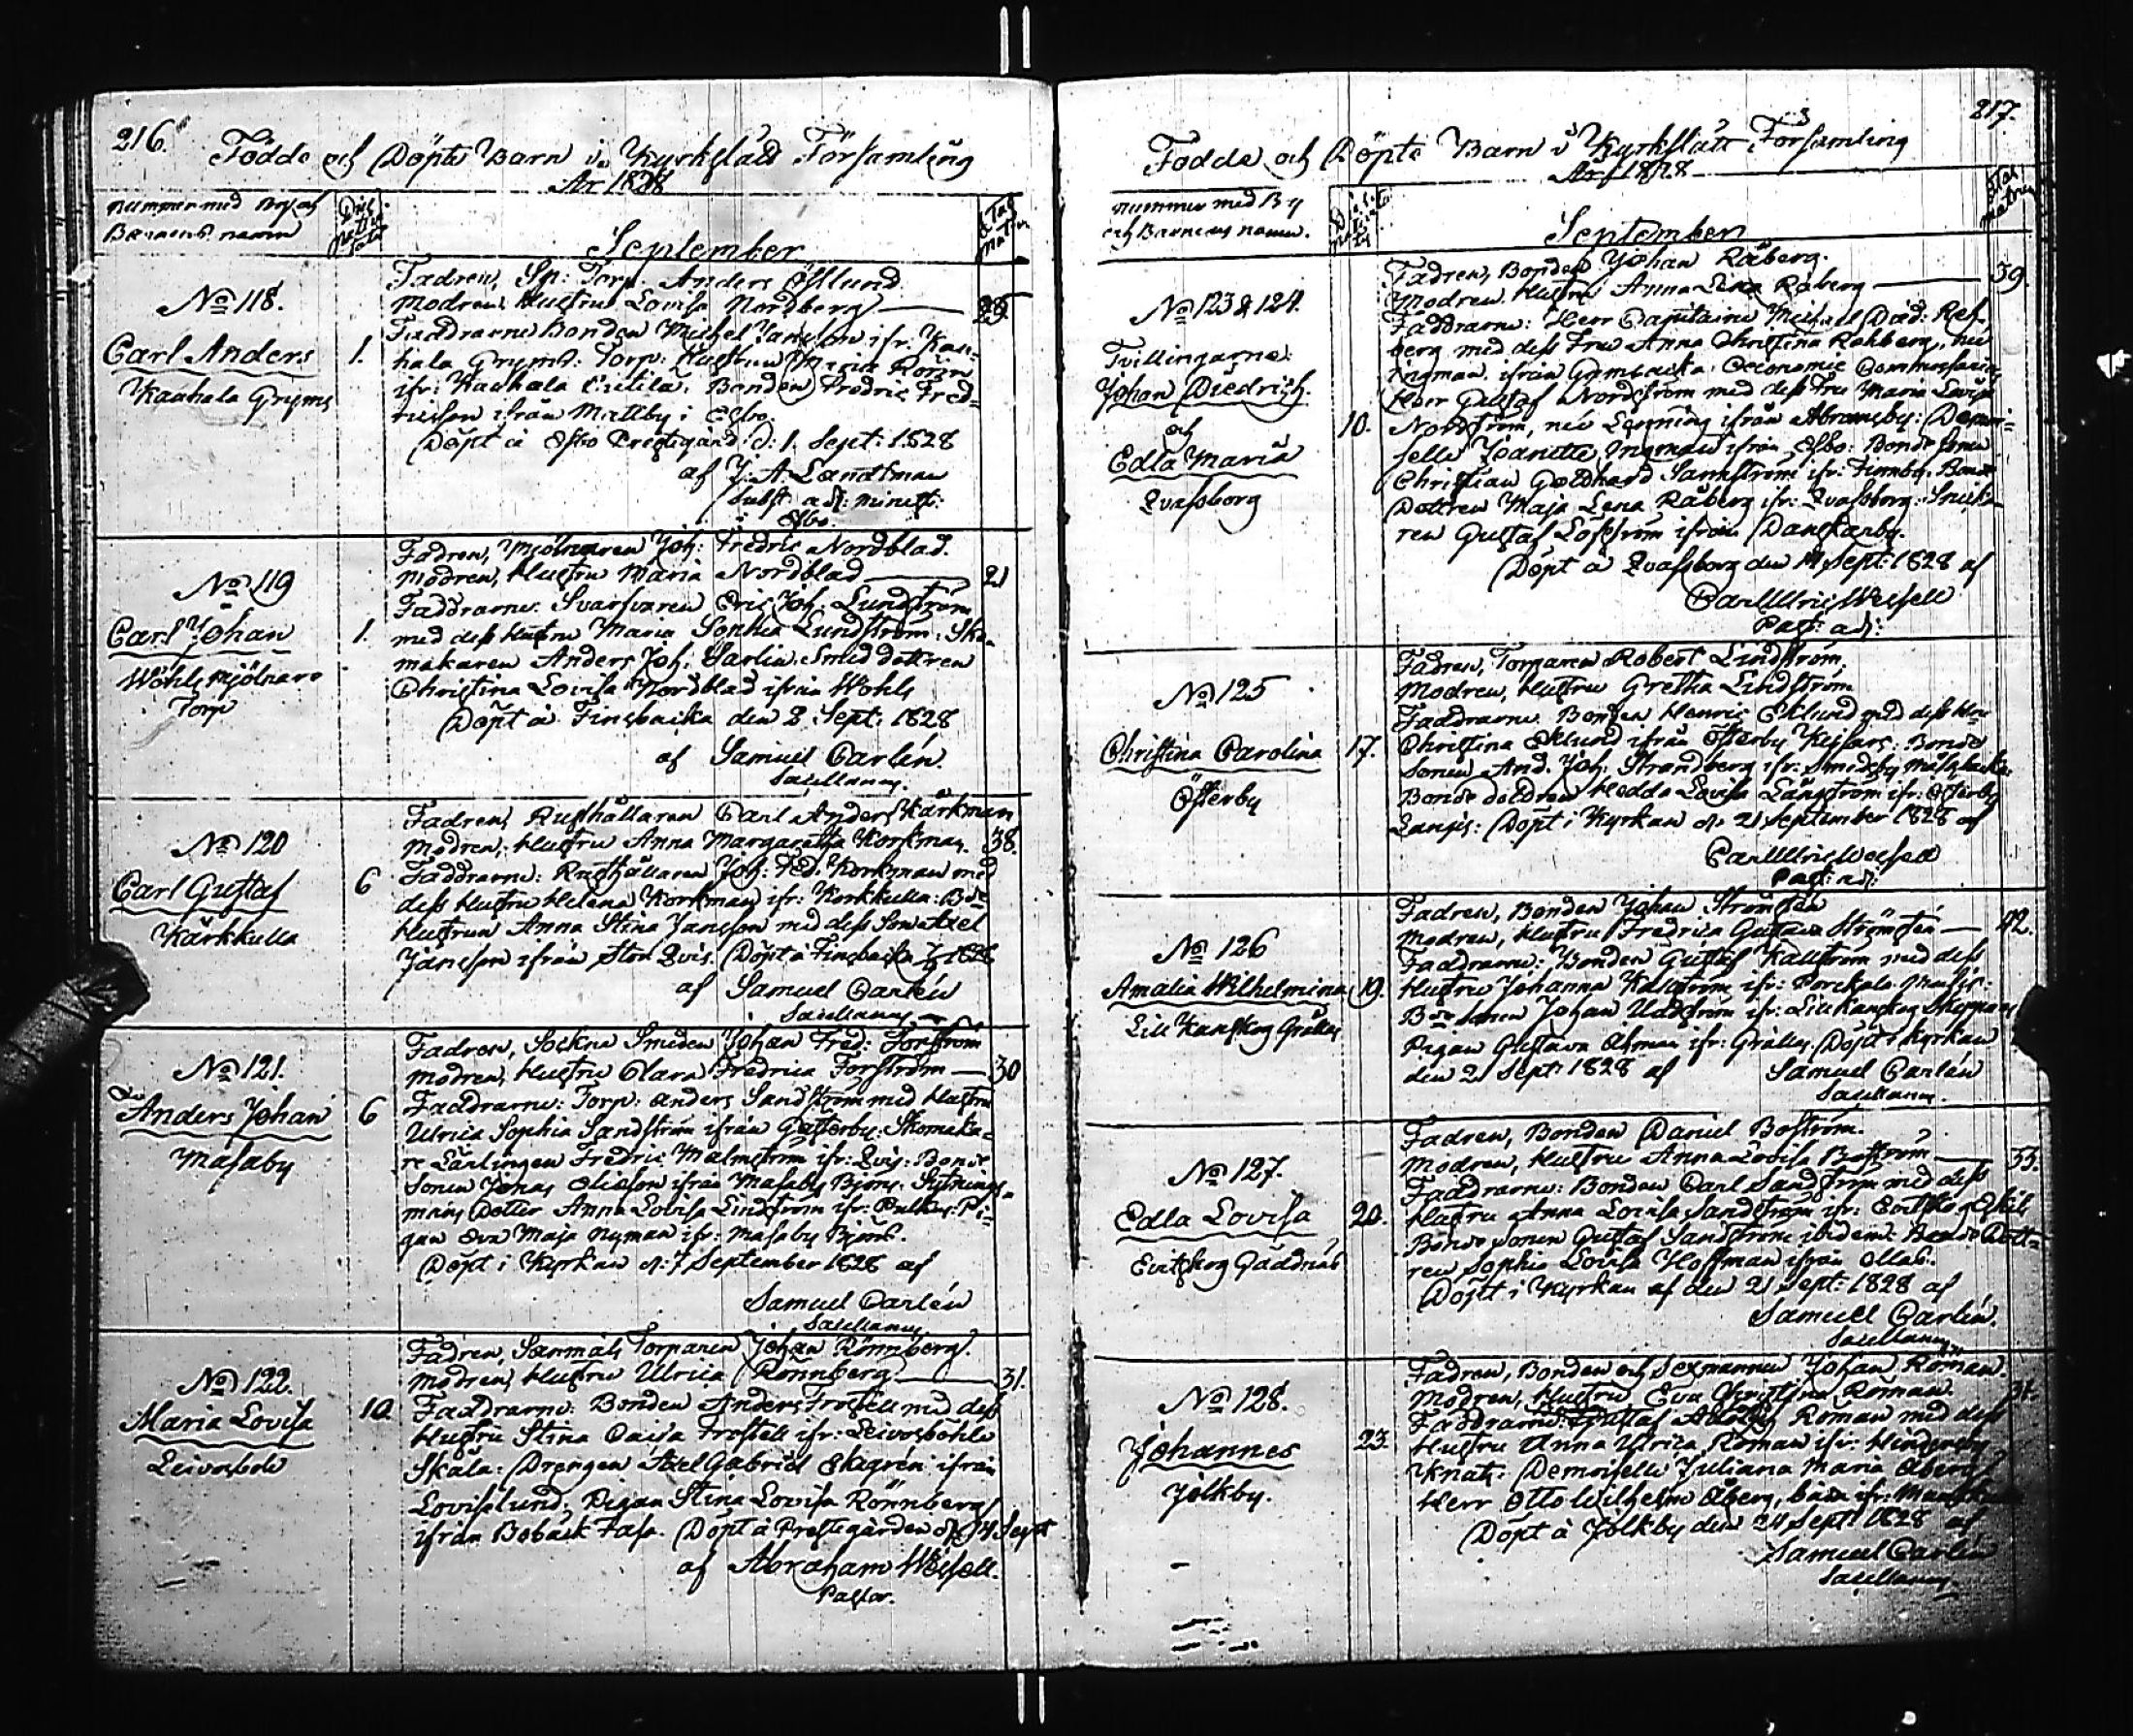 216.
Födde och Döpte Barn i Kyrkslätt Församling
År 1828
Nummer med By och
Barnens namn
September
No 118.
Carl Anders
Kauhala Gryms
1.
Fadren, Sp: Torp: Anders Östlund
Modren, Hustru Lovisa Nordberg
Faddrarne Bonden Michel Jansson ifr: Kau-
hala Gryms: Torp: Hustrun
ifr: Kauhala: Bonden Fredric Fred-
ricsson ifrån Mattby i Esbo.
Döpt å Esbo Prestgård d: 1. Sept: 1828
af J. A. Landtman
Subst: adj: minist:
Esbo.
No 119
Carl Johan
Wohls Mjölnare
Torp
1.
Fadren, Mjölnaren Joh: Fredric Nordblad.
Modren, Hustru Maria Nordblad 21
Faddrarne: Svarfvaren Eric Joh: Lundström
med dess Hustru Maria Sophia Lundström: Sko-
makaren Anders Joh: Sarlin. Smeddottren
Christina Lovisa Nordblad ifrån Wohls
Döpt å Finsbacka den 2 Sept: 1828
af Samuel Carlén.
Sacellanus.
No 120
Carl Gustaf
Kärkkulla
6
Fadren, Rusthållaren Carl Anders Kärkman
Modren, Hustru Anna Margaretha Korkman. 38.
Faddrarne: Rusthållaren Joh: Fed: Korkman med
dess Hustru Helena Korkman ifr: Korkkulla: Bde
Hustrun Anna Stina Jansson med dess Son Axel
Jansson ifrån Stor Qvis. Döpt å Finsbacka 1828
af Samuel Carlén
Sacellanus
No 121.
Anders Johan
Masaby
6
Fadren, Sockne Smeden Johan Fred: Forsström
Modren, Hustru Clara Fredrica Forström 30
Faddrarne: Torp: Anders Sandström med Hustru
Ulrica Sophia Sandström ifrån Gesterby: Skomaka-
re Lärlingen Fredric Malmström ifr: Qvis: Bonde
Sonen Jonas Eliasson ifrån Masaby Björns: Sytnings-
mans Dotter Anna Lovisa Lindström ifr: Pi-
gan Eva Maja Nyman ifr: Masaby Björns.
Döpt i Kyrkan d: 7 September 1828 af
Samuel Carlén
Sacellanus
No 122.
Maria Lovisa
10
Fadren, Torparen Johan Rönnberg.
Modren, Hustru Ulrica Rönnberg 31.
Faddrarne: Bonden Anders Frostell med dess
Hustru Stina Caisa Frostell ifr:
Skåla: Drengen Axel Gabriel Ekegrén ifrån
Lovisalund: Pigan Stina Lovisa Rönnberg
ifrån Bobäck. Döpt å Prestegården d. 14 Sept
af Abraham Wessell.
Pastor.
217.
Födde och Döpte Barn i Kyrkslätt Församling
År 1828
Nummer med By
och Barnens namn.
September
No 123 & 124.
Tvillingarne:
Johan Diedrich.
och
Edla Maria
Qvafsborg
10.
Fadren, Bonden Johan Råberg.
Modren, Hustru Anna Lisa Råberg 39.
Faddrarne: Herr Capitaine Michael Did: Reh-
berg med dess Fru Anna Christina Rehberg, née
Ingman, ifrån: Oeconomie Commissarien
Herr Gustaf Nordström med dess Fru Maria Lovisa
Nordström, née Lenning ifrån Abramsby: Demoi-
selle Ingman ifrån Esbo: Bonde Sonen
Christian Gotthard Sannström ifr: Finnby: Bonde
Dottren Maja Lena Råberg ifr: Qvafsborg: Snicka-
ren Gustaf Löfström ifrån Danskarby.
Döpt å Qvafsborg den 14 Sept: 1828 af
Carl Ulric Wessell
Past: adj:
No 125
Christina Carolina
Österby
17.
Fadren, Torparen Robert Lindström.
Modren, Hustru Gretha Lindström
Faddrarne: Bonden Henric Eklund med dess Hu
Christina Eklund ifrån Österby Kejsars: Bonde
Sonen And. Joh. Strandberg ifr: Smedsby
Bonde dottren Hedda Lovisa Långström ifr: Österby
Döpt i Kyrkan d. 21 September 1828 af
Carl Ulric Wessell
Past: adj:
No 126
Amalia Wilhelmina
Lill Kanskog Grålles
19.
Fadren, Bonden Johan Strömstén
Modren, Hustru Fredrica Gustava Strömstén 42.
Faddrarne: Bonden Gustaf Kallström med dess
Hustru Johanna Kallström ifr: Porckala
Bde Sonen Johan Uddström ifr: Lill Kanskog
Pigan Gustava Åhman ifr: Grålles. Döpt i Kyrkan
den 21 Sept: 1828 af Samuel Carlén
Sacellanus.
No 127.
Edla Lovisa
Evitskog Gäddnäs
20.
Fadren, Bonden Daniel Boström.
Modren, Hustru Anna Lovisa Boström 33.
Faddrarne: Bonden Carl Sandström med dess
Hustru Anna Lovisa Sandström ifr: Evitskog Eskils
Bonde Sonen Gustaf Sandström ibidem: Bonde Dott-
ren Sophia Lovisa Hoffman ifrån Ollas.
Döptt i Kyrkan af den 21 Sept: 1828 af
Samuel Carlén.
Sacellanus
No 128.
Johannes
Jolkby.
23.
Fadren, Bonden och Sexmannen Johan Roman.
Modren, Hustru Eva Christina Roman. 31.
Faddrarne: Gustaf Adolph Roman med dess
Hustru Anna Ulrica Roman ifr: Hindersby
Knats: Demoiselle Juliana Maria Åberg
Herr Otto Wilhelm Åberg, båda ifr:
Döpt å Jolkby den 24 Sept: 1828 af
Samuel Carlén
Sacellanus.